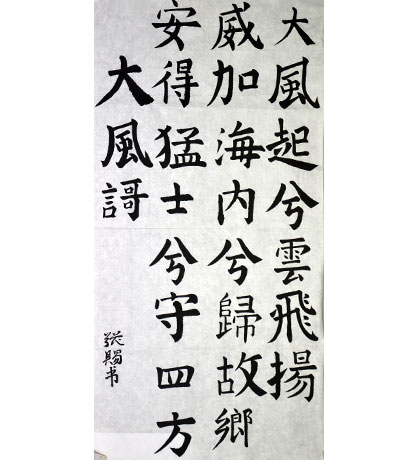 大風起兮雲飛揚
威加海内兮歸故鄉
安得猛士兮守四方
大風謌
賜书